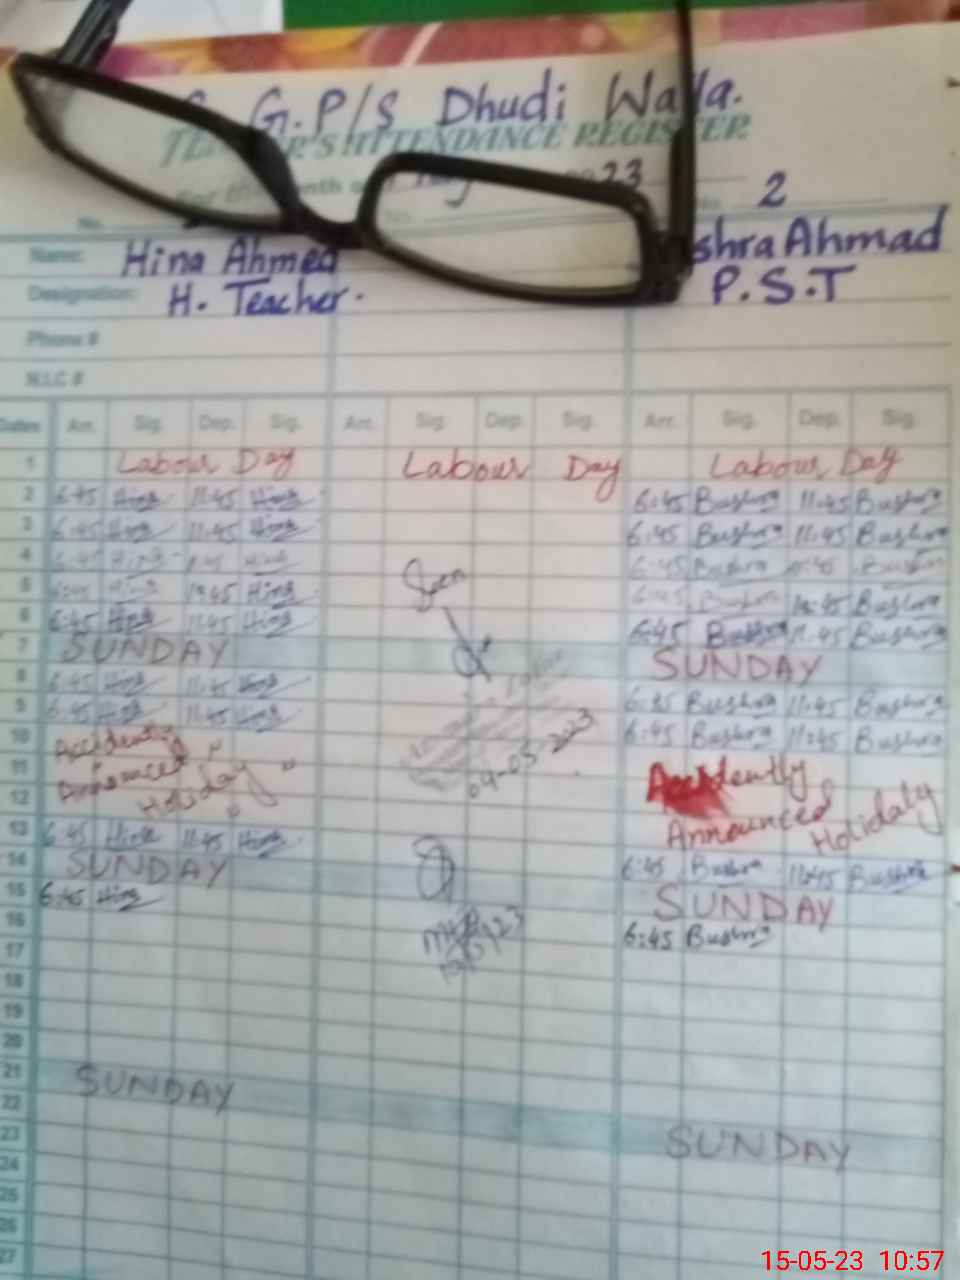 G.P/S Dhudi Wala.
TEACHER'S ATTENDANCE REGISTER
For the Month of May 2023
No. No. No. 2
Name: Hina Ahmed shra Ahmad
Designation: H. Teacher. P.S.T
Phone #
N.I.C #
Dates Arr. Sig. Dep. Sig. Arr. Sig. Dep. Sig. Arr. Sig. Dep. Sig.
1 Labour Day Labour Day Labour Day
2 6:45 Hina 11:45 Hina 6:45 Bushra 11:45 Bushra
3 6:45 Hina 11:45 Hina 6:45 Bushra 11:45 Bushra
4 6:45 Hina Hina 6:45 Bushra Bushra
5 6:45 Hina 10:45 Hina Seen 6:45 Bushra Bushra
6 6:45 Hina 11:45 Hina 6:45 Bushra 11:45 Bushra
7 SUNDAY SUNDAY
8 6:45 Hina 11:45 Hina 6:45 Bushra 11:45 Bushra
9 6:45 Hina 11:45 Hina 6:45 Bushra 11:45 Bushra
10 Accidently " 04-05-2023 Accidently
11 Announced " Announced
12 Holiday " Holidaly
13 6:45 Hina 11:45 Hina 6:45 Bushra 11:45 Bushra
14 SUNDAY SUNDAY
15 6:45 Hina 6:45 Bushra
16
17
18
19
20
21 SUNDAY SUNDAY
22
23
24
25
26
27
15-05-23 10:57